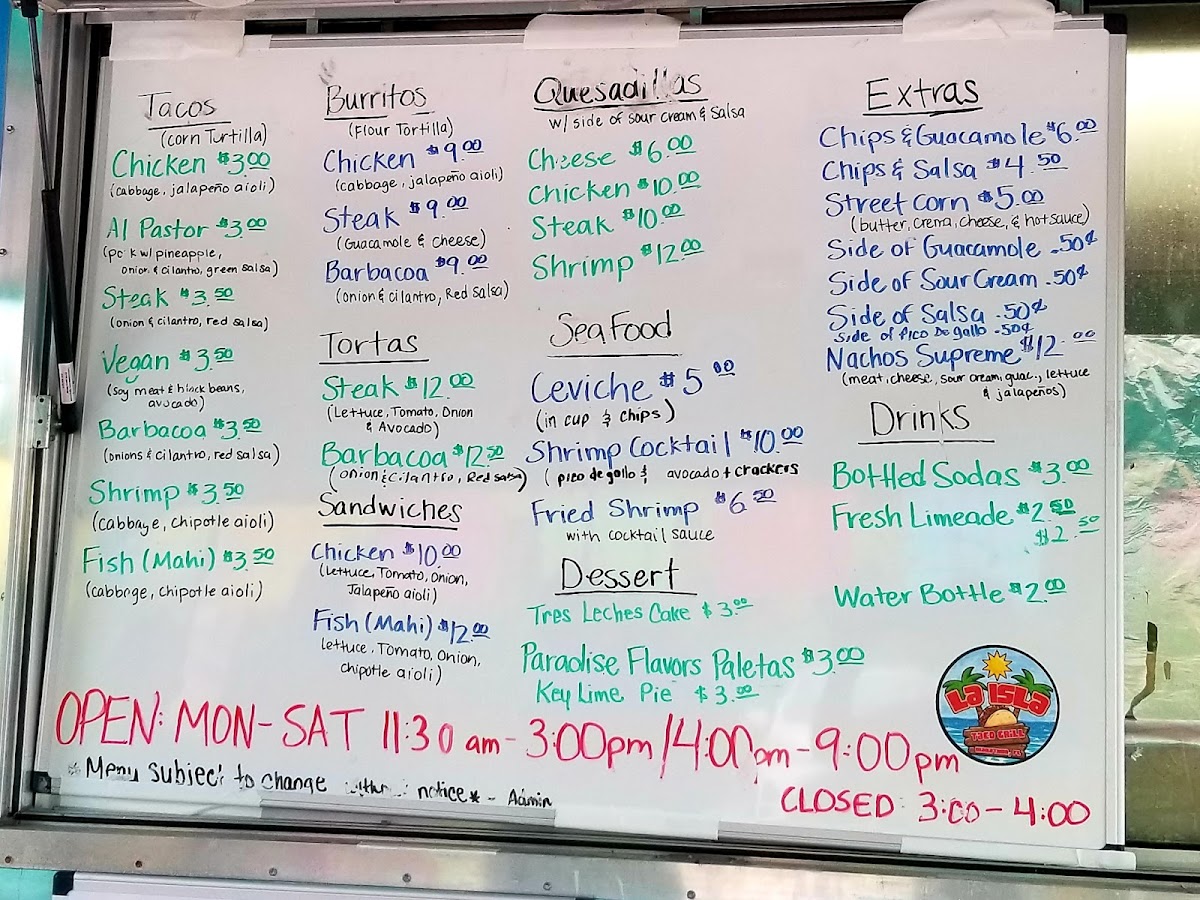 Tacos
(corn Turtilla)
Chicken $3.00
(cabbage, jalapeño aioli)
Al Pastor $3.00
w/ pineapple,
onion & cilantro, green salsa)
Steak $3.50
(onion & cilantro, red salsa)
Vegan $3.50
(soy meat & black beans,
avocado)
Barbacoa $3.50
(onions & cilantro, red salsa)
Shrimp $3.50
(cabbage, chipotle aioli)
Fish (Mahi) $3.50
(cabbage, chipotle aioli)
Burritos
(Flour Tortilla)
Chicken $9.00
(cabbage, jalapeño aioli)
Steak $9.00
(Guacamole & cheese)
Barbacoa $9.00
(onion & cilantro, Red salsa)
Tortas
Steak $12.00
(Lettuce, Tomato, Onion
& Avocado)
Barbacoa $12.50
(onion & cilantro, Red salsa)
Sandwiches
Chicken $10.00
(Lettuce, Tomato, Onion,
Jalapeño aioli)
Fish (Mahi) $12.00
Lettuce, Tomato, Onion,
chipotle aioli)
Quesadillas
w/ side of sour cream & Salsa
Cheese $6.00
Chicken $10.00
Steak $10.00
Shrimp $12.00
Sea Food
Ceviche $5.00
(in cup & chips)
Shrimp Cocktail $10.00
(pico de gallo & avocado + crackers
Fried Shrimp $6.50
with cocktail sauce
Dessert
Tres Leches Cake $3.00
Paradise Flavors Paletas $3.00
Key Lime Pie $3.00
Extras
Chips & Guacamole $6.00
Chips & Salsa $4.50
Street corn $5.00
(butter, crema, cheese, & hot sauce)
Side of Guacamole .50¢
Side of Sour Cream .50¢
Side of Salsa .50¢
Side of Pico De gallo .50¢
Nachos Supreme $12.00
(meat, cheese, sour cream, guac., lettuce
& jalapeños)
Drinks
Bottled Sodas $3.00
Fresh Limeade $2.50
$2.50
Water Bottle $2.00
LA ISLA
TACO GRILL
OPEN: MON-SAT 11:30 am - 3:00pm / 4:00pm - 9:00pm
*Menu subject to change without notice* - Admin
CLOSED: 3:00 - 4:00